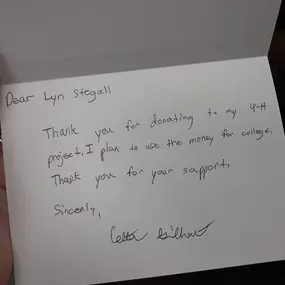 Dear Lyn Stegall
Thank you for donating to my 4-H
project. I plan to use the money for college.
Thank you for your support.
Sincerly,